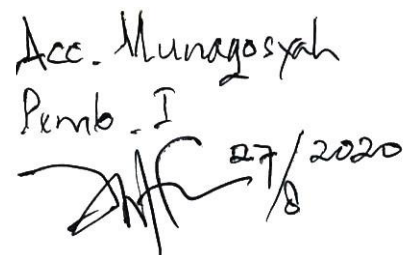 Acc. Munaqosyah
Pemb. I
27/8 2020